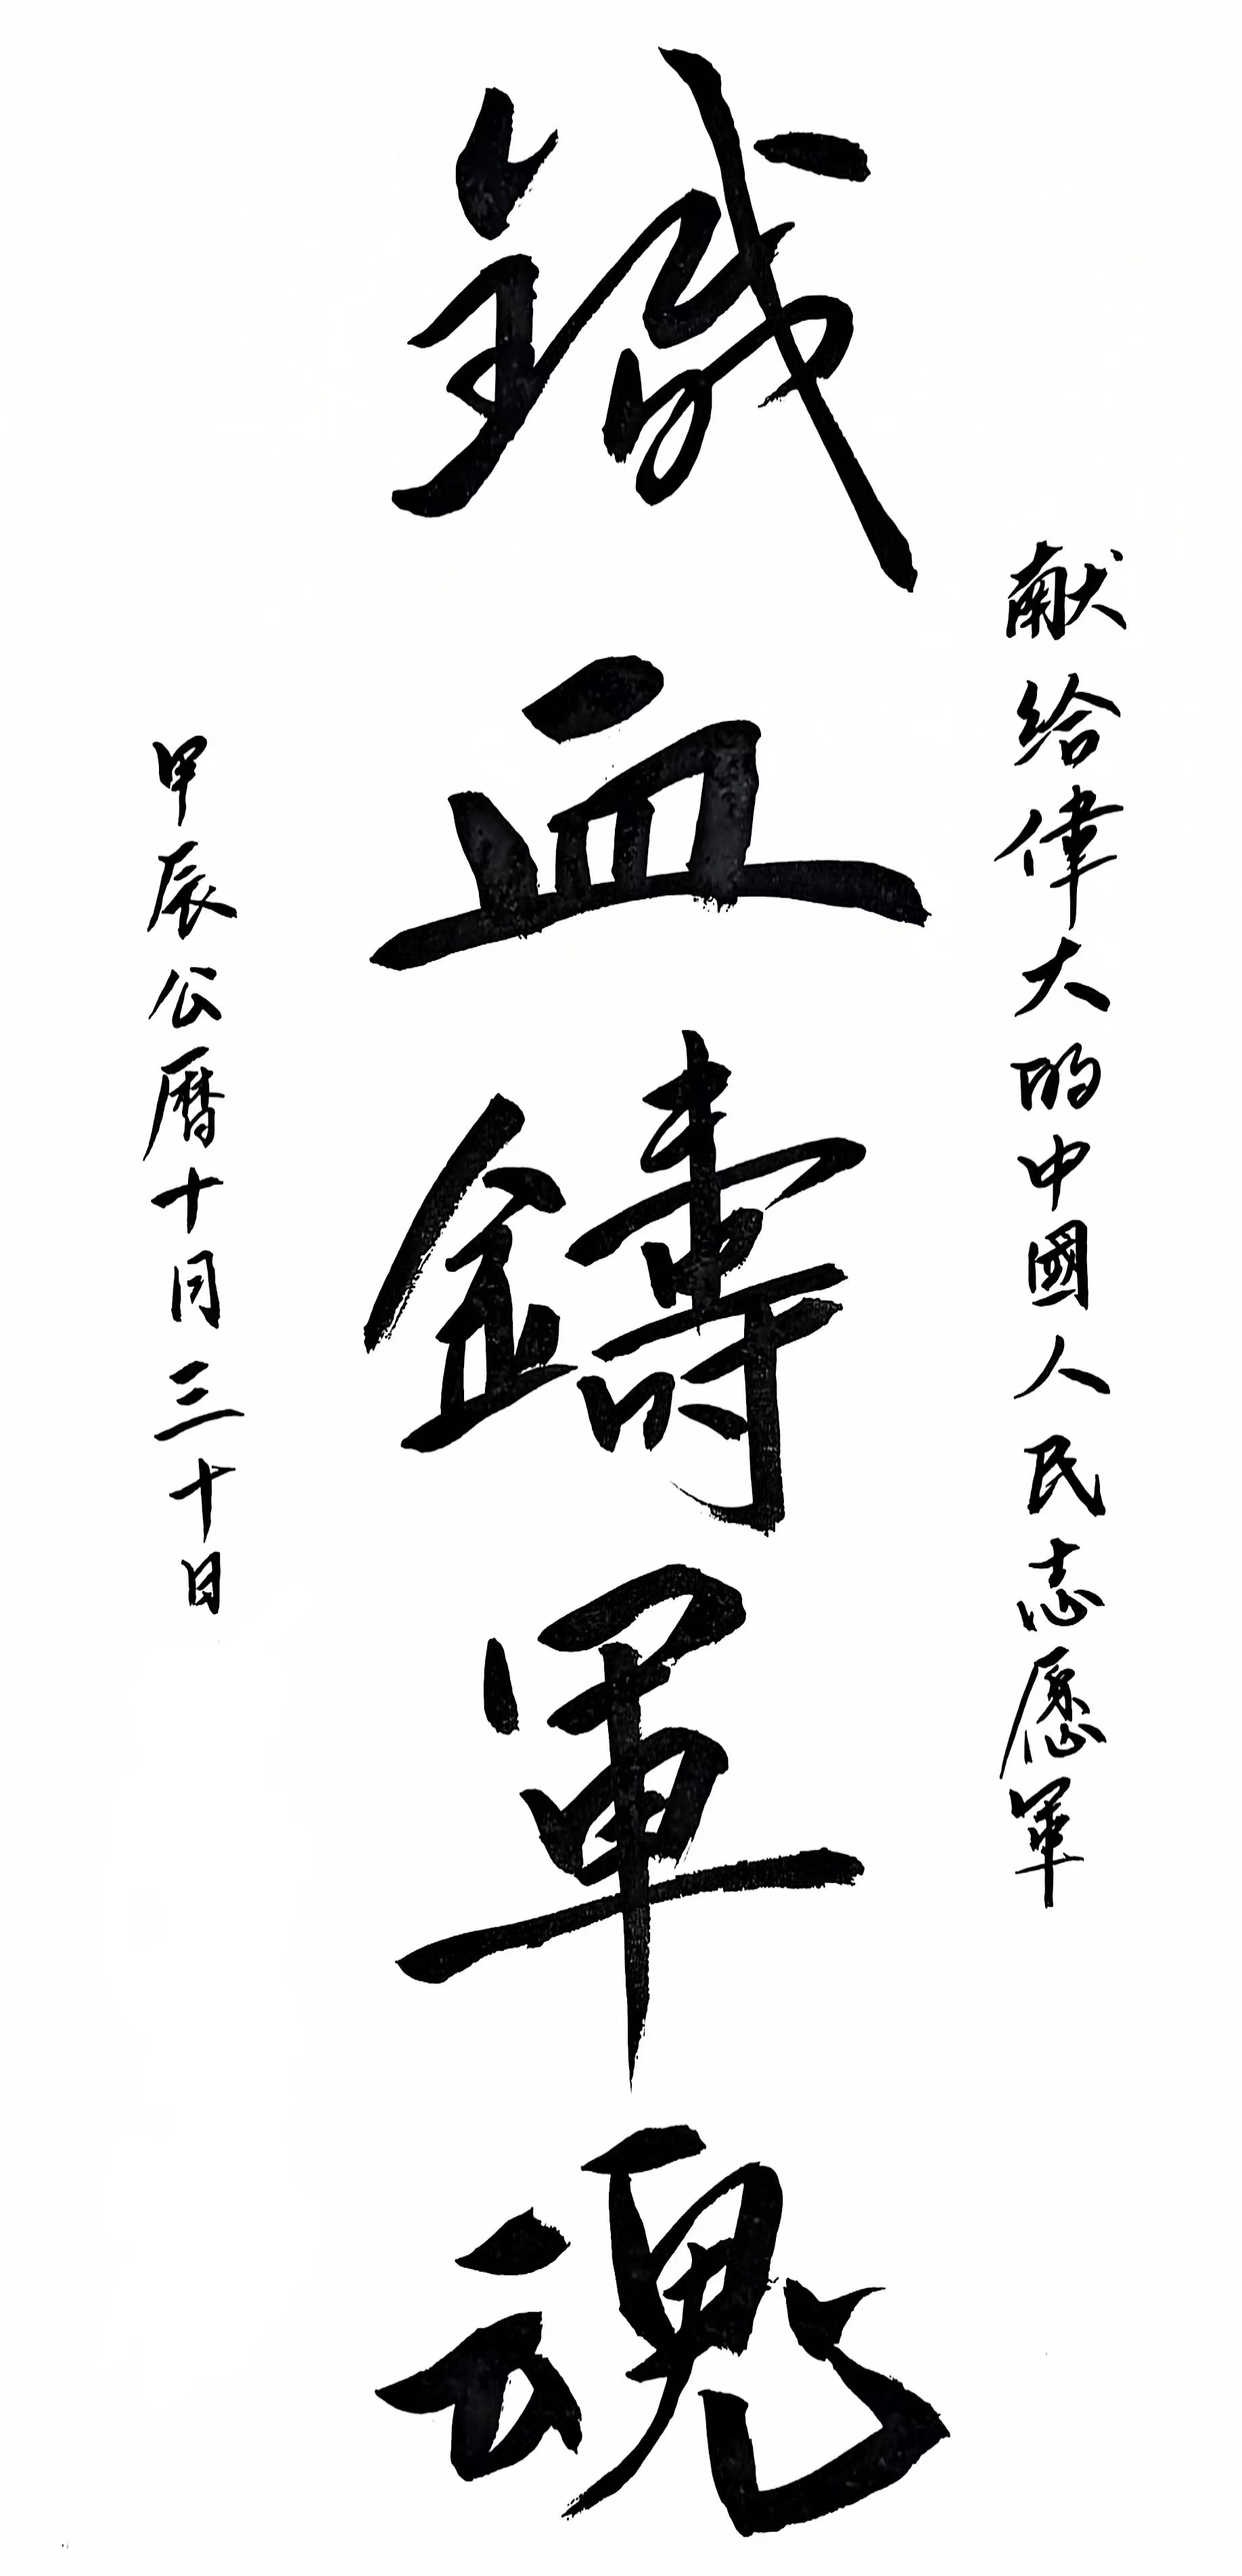 献给偉大的中國人民志愿軍
鐵血鑄軍魂
甲辰公曆十月三十日